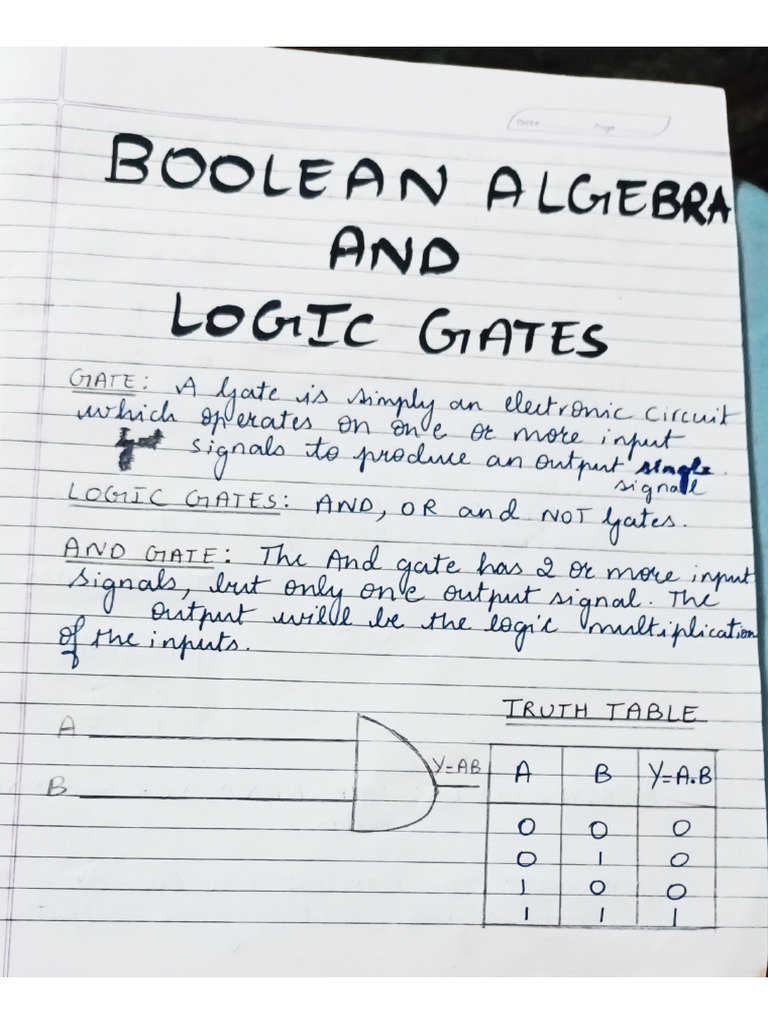 BOOLEAN ALGEBRA
AND
LOGIC GATES
GATE: A Gate is simply an electronic circuit
which operates on one or more input
signals to produce an output single
signal
LOGIC GATES: AND, OR and NOT Gates.
AND GATE: The And gate has 2 or more input
signals, but only one output signal. The
output will be the logic multiplication
of the inputs.
TRUTH TABLE
A
B
Y=AB
A B Y=A.B
0 0 0
0 1 0
1 0 0
1 1 1